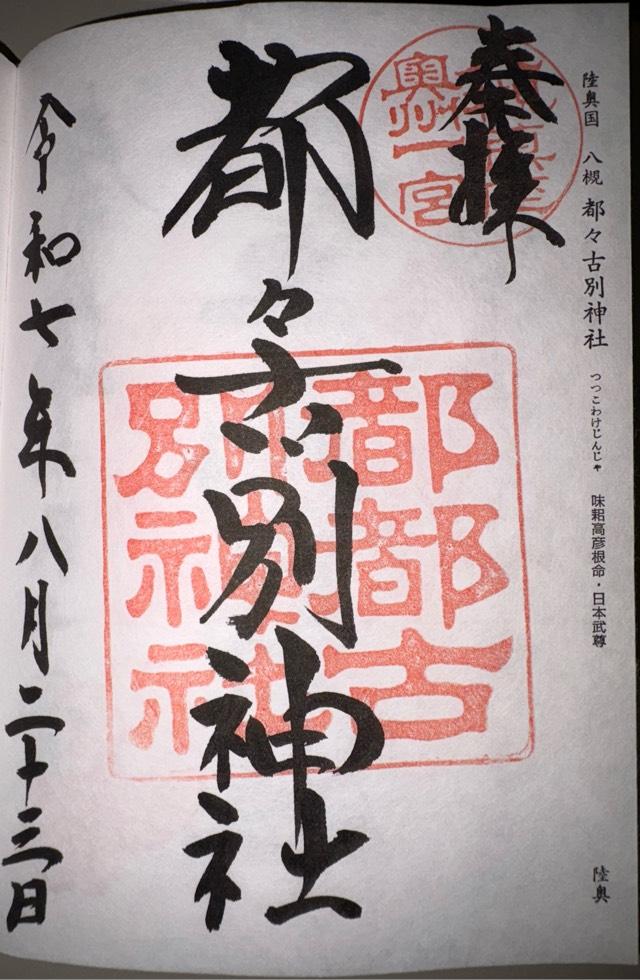 陸奥国 八槻 都々古別神社 つつこわけじんじゃ 味耜高彦根命・日本武尊 陸奥
奉拝
奥州一宮
都々古別神社
都都古
別神社
令和七年八月二十三日